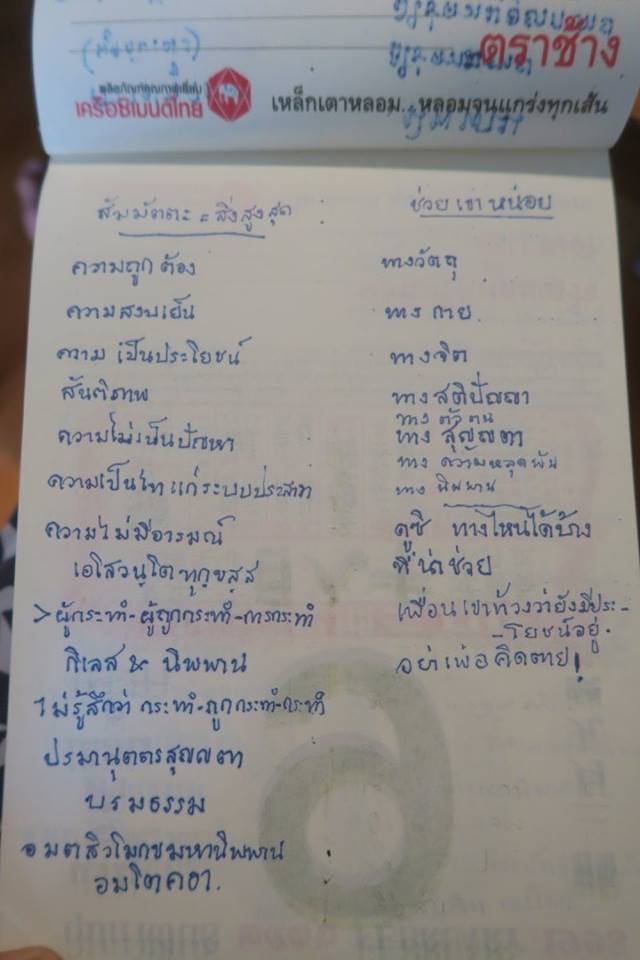 ตราช้าง
ผลิตภัณฑ์คุณภาพเชื่อมั่น
เครือซิเมนต์ไทย
เหล็กเตาหลอม.. หลอมจนแกร่งทุกเส้น
สัมมัตตะ = สิ่งสูงสุด
ความถูกต้อง
ความสงบเย็น
ความเป็นประโยชน์
สันติภาพ
ความไม่เป็นปัญหา
ความเป็นไทแก่ระบบประสาท
ความไม่มีอารมณ์
เอโสวนฺโตทุกฺขสฺส
>ผู้กระทำ-ผู้ถูกกระทำ-การกระทำ
กิเลส & นิพพาน
ไม่รู้สึกว่า กระทำ-ถูกกระทำ-กระทำ
ปรมานุตตรสุญญตา
บรมธรรม
อมตสิวโมกขมหานิพพาน
อมโตคธา.
ช่วยเขาหน่อย
ทางวัตถุ
ทางกาย
ทางจิต
ทางสติปัญญา
ทางตัวตน
ทางสุญญตา
ทางความหลุดพ้น
ทางนิพพาน
ดูซิ ทางไหนได้บ้าง
ที่น่าช่วย
เพื่อนเขาท้วงว่ายังมีประ-
-โยชน์อยู่.
อย่าเพ่อคิดตาย!